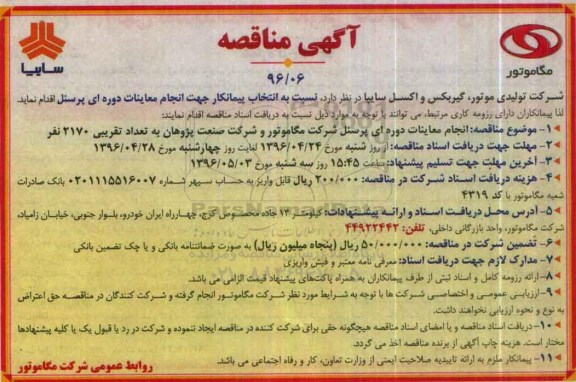 آگهی مناقصه
۹۶/۰۶
سایپا
مگاموتور
شرکت تولیدی موتور، گیربکس و اکسل سایپا در نظر دارد، نسبت به انتخاب پیمانکار جهت انجام معاینات دوره ای پرسنل اقدام نماید.
لذا پیمانکاران دارای رزومه کاری مرتبط، می توانند با توجه به موارد ذیل نسبت به دریافت اسناد مناقصه اقدام نمایند:
۱- موضوع مناقصه: انجام معاینات دوره ای پرسنل شرکت مگاموتور و شرکت صنعت پژوهان به تعداد تقریبی ۲۱۷۰ نفر
۲- مهلت جهت دریافت اسناد مناقصه: از روز شنبه مورخ ۱۳۹۶/۰۴/۲۴ لغایت روز چهارشنبه مورخ ۱۳۹۶/۰۴/۲۸
۳- آخرین مهلت جهت تسلیم پیشنهاد: ساعت ۱۵:۴۵ روز سه شنبه مورخ ۱۳۹۶/۰۵/۰۳
۴- هزینه دریافت اسناد شرکت در مناقصه: ۲۰۰/۰۰۰ ریال قابل واریز به حساب سپهر شماره ۰۲۰۱۱۱۵۵۱۶۰۰۷ بانک صادرات
شعبه مگاموتور با کد ۴۳۱۹
۵- آدرس محل دریافت اسناد و ارائه پیشنهادات: کیلومتر ۱۳ جاده مخصوص کرج، چهارراه ایران خودرو، بلوار جنوبی، خیابان زامیاد،
شرکت مگاموتور، واحد بازرگانی داخلی، تلفن: ۴۴۹۲۲۴۴۲
۶- تضمین شرکت در مناقصه: ۵۰/۰۰۰/۰۰۰ ریال (پنجاه میلیون ریال) به صورت ضمانتنامه بانکی و یا چک تضمین بانکی
۷- مدارک لازم جهت دریافت اسناد: معرفی نامه معتبر و فیش واریزی
۸- ارائه رزومه کامل و اسناد ثبتی از طرف پیمانکاران به همراه پاکت‌های پیشنهاد قیمت الزامی می باشد.
۹- ارزیابی عمومی و اختصاصی شرکت ها با توجه به شرایط مورد نظر شرکت مگاموتور انجام گرفته و شرکت کنندگان در مناقصه حق اعتراض
به نوع و نحوه ارزیابی نخواهند داشت.
۱۰- دریافت اسناد مناقصه و یا امضای اسناد مناقصه هیچگونه حقی برای شرکت کننده در مناقصه ایجاد ننموده و شرکت در رد یا قبول یک یا کلیه پیشنهادها
مختار است. هزینه چاپ آگهی از برنده مناقصه اخذ می گردد.
۱۱- پیمانکار ملزم به ارائه تاییدیه صلاحیت ایمنی از وزارت تعاون، کار و رفاه اجتماعی می باشد.
روابط عمومی شرکت مگاموتور